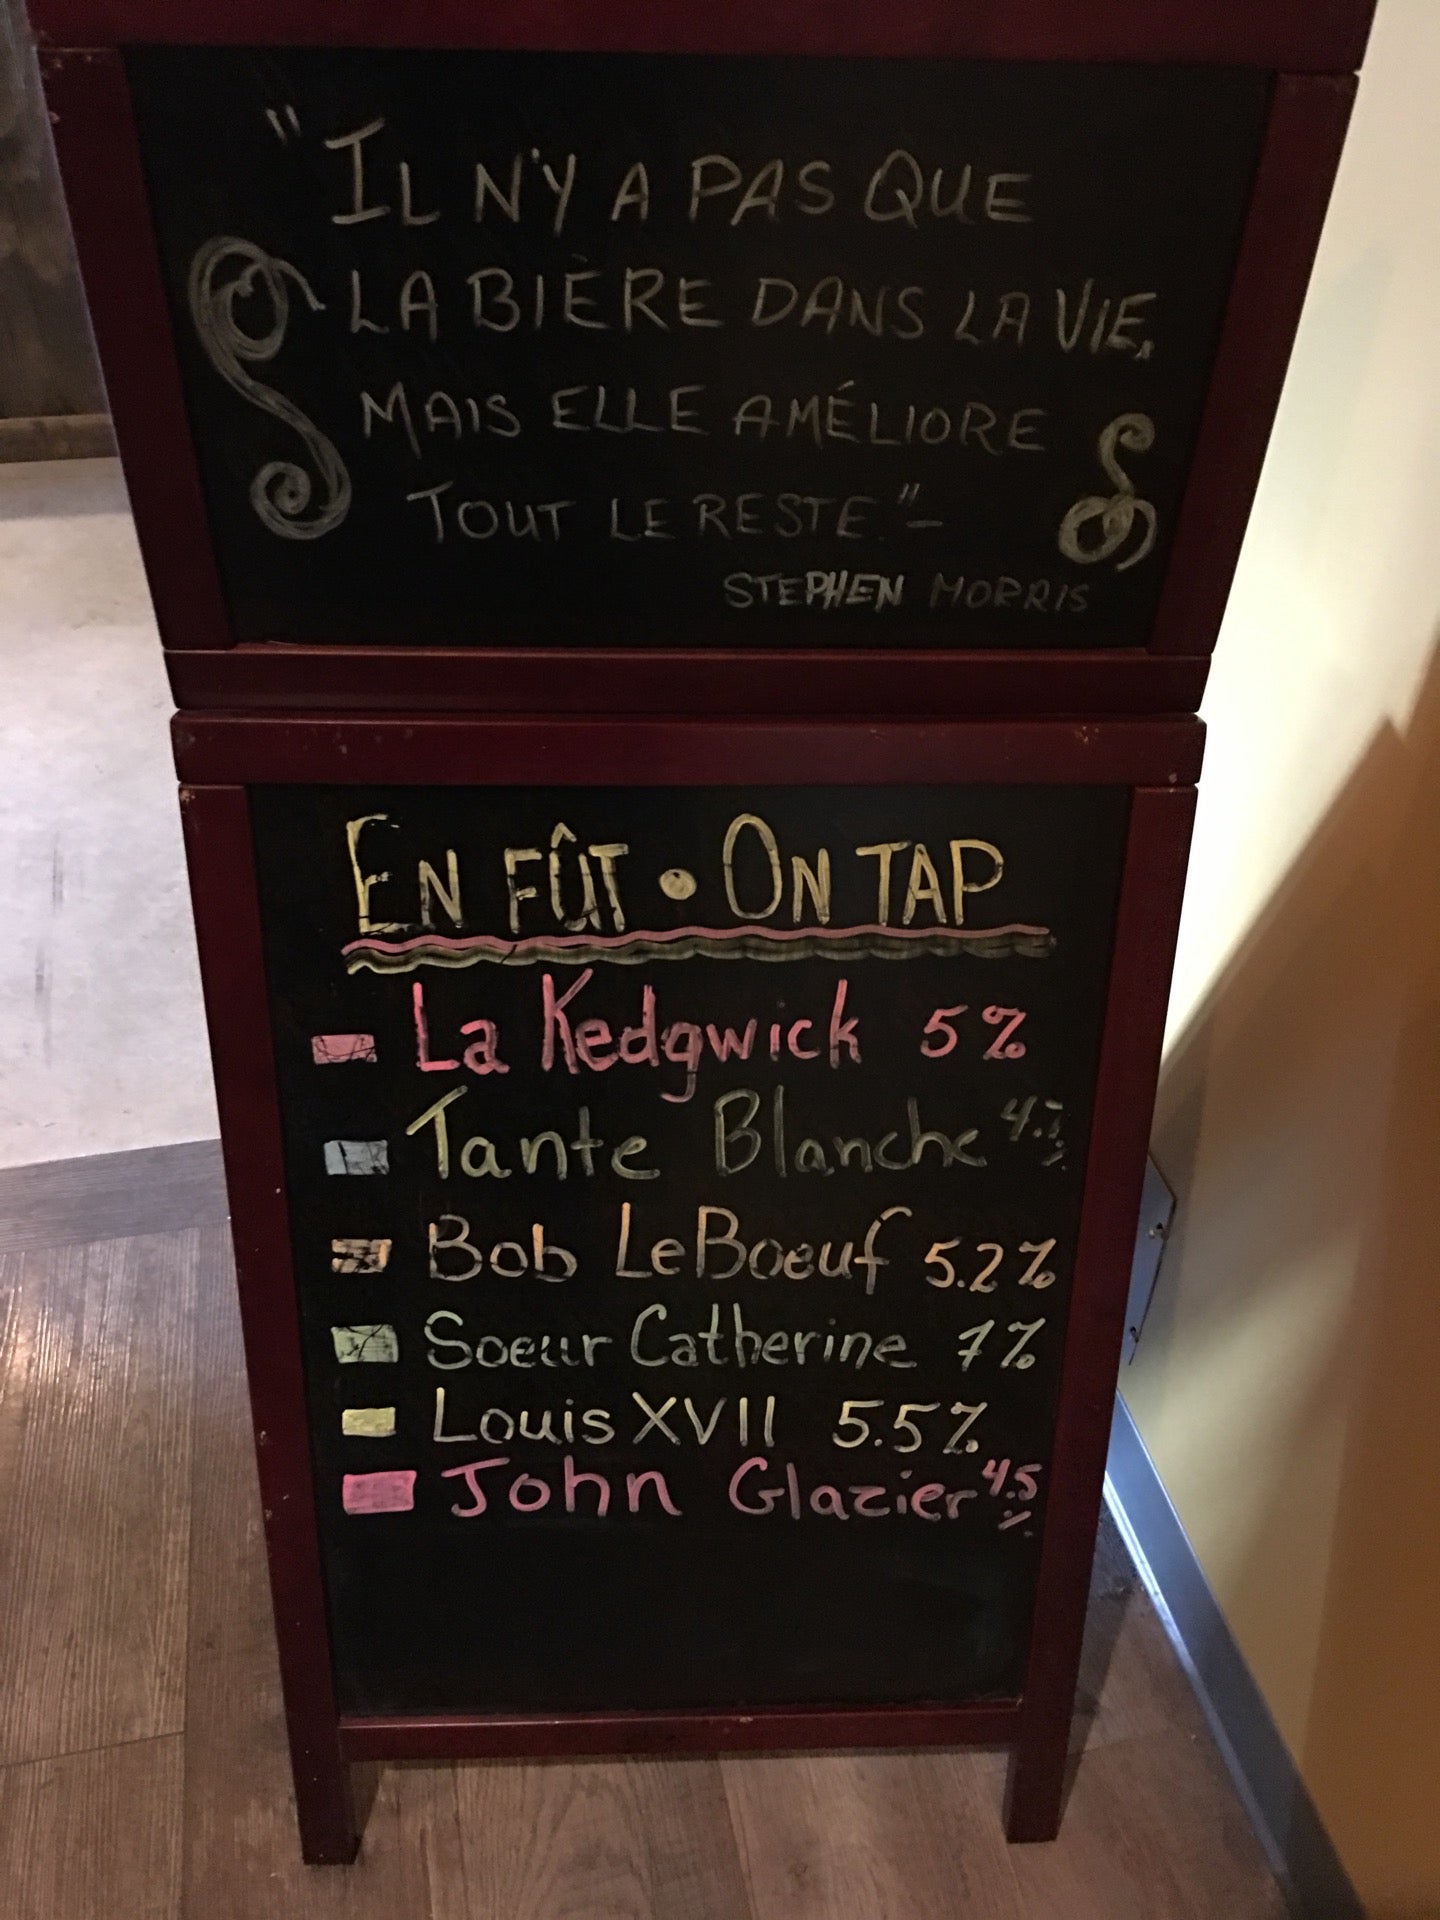 "IL N'Y A PAS QUE
LA BIÈRE DANS LA VIE,
MAIS ELLE AMÉLIORE
TOUT LE RESTE."-
STEPHEN MORRIS
EN FÛT • ON TAP
La Kedgwick 5%
Tante Blanche
Bob LeBoeuf 5.2%
Soeur Catherine 7%
Louis XVII 5.5%
John Glazier 4.5%